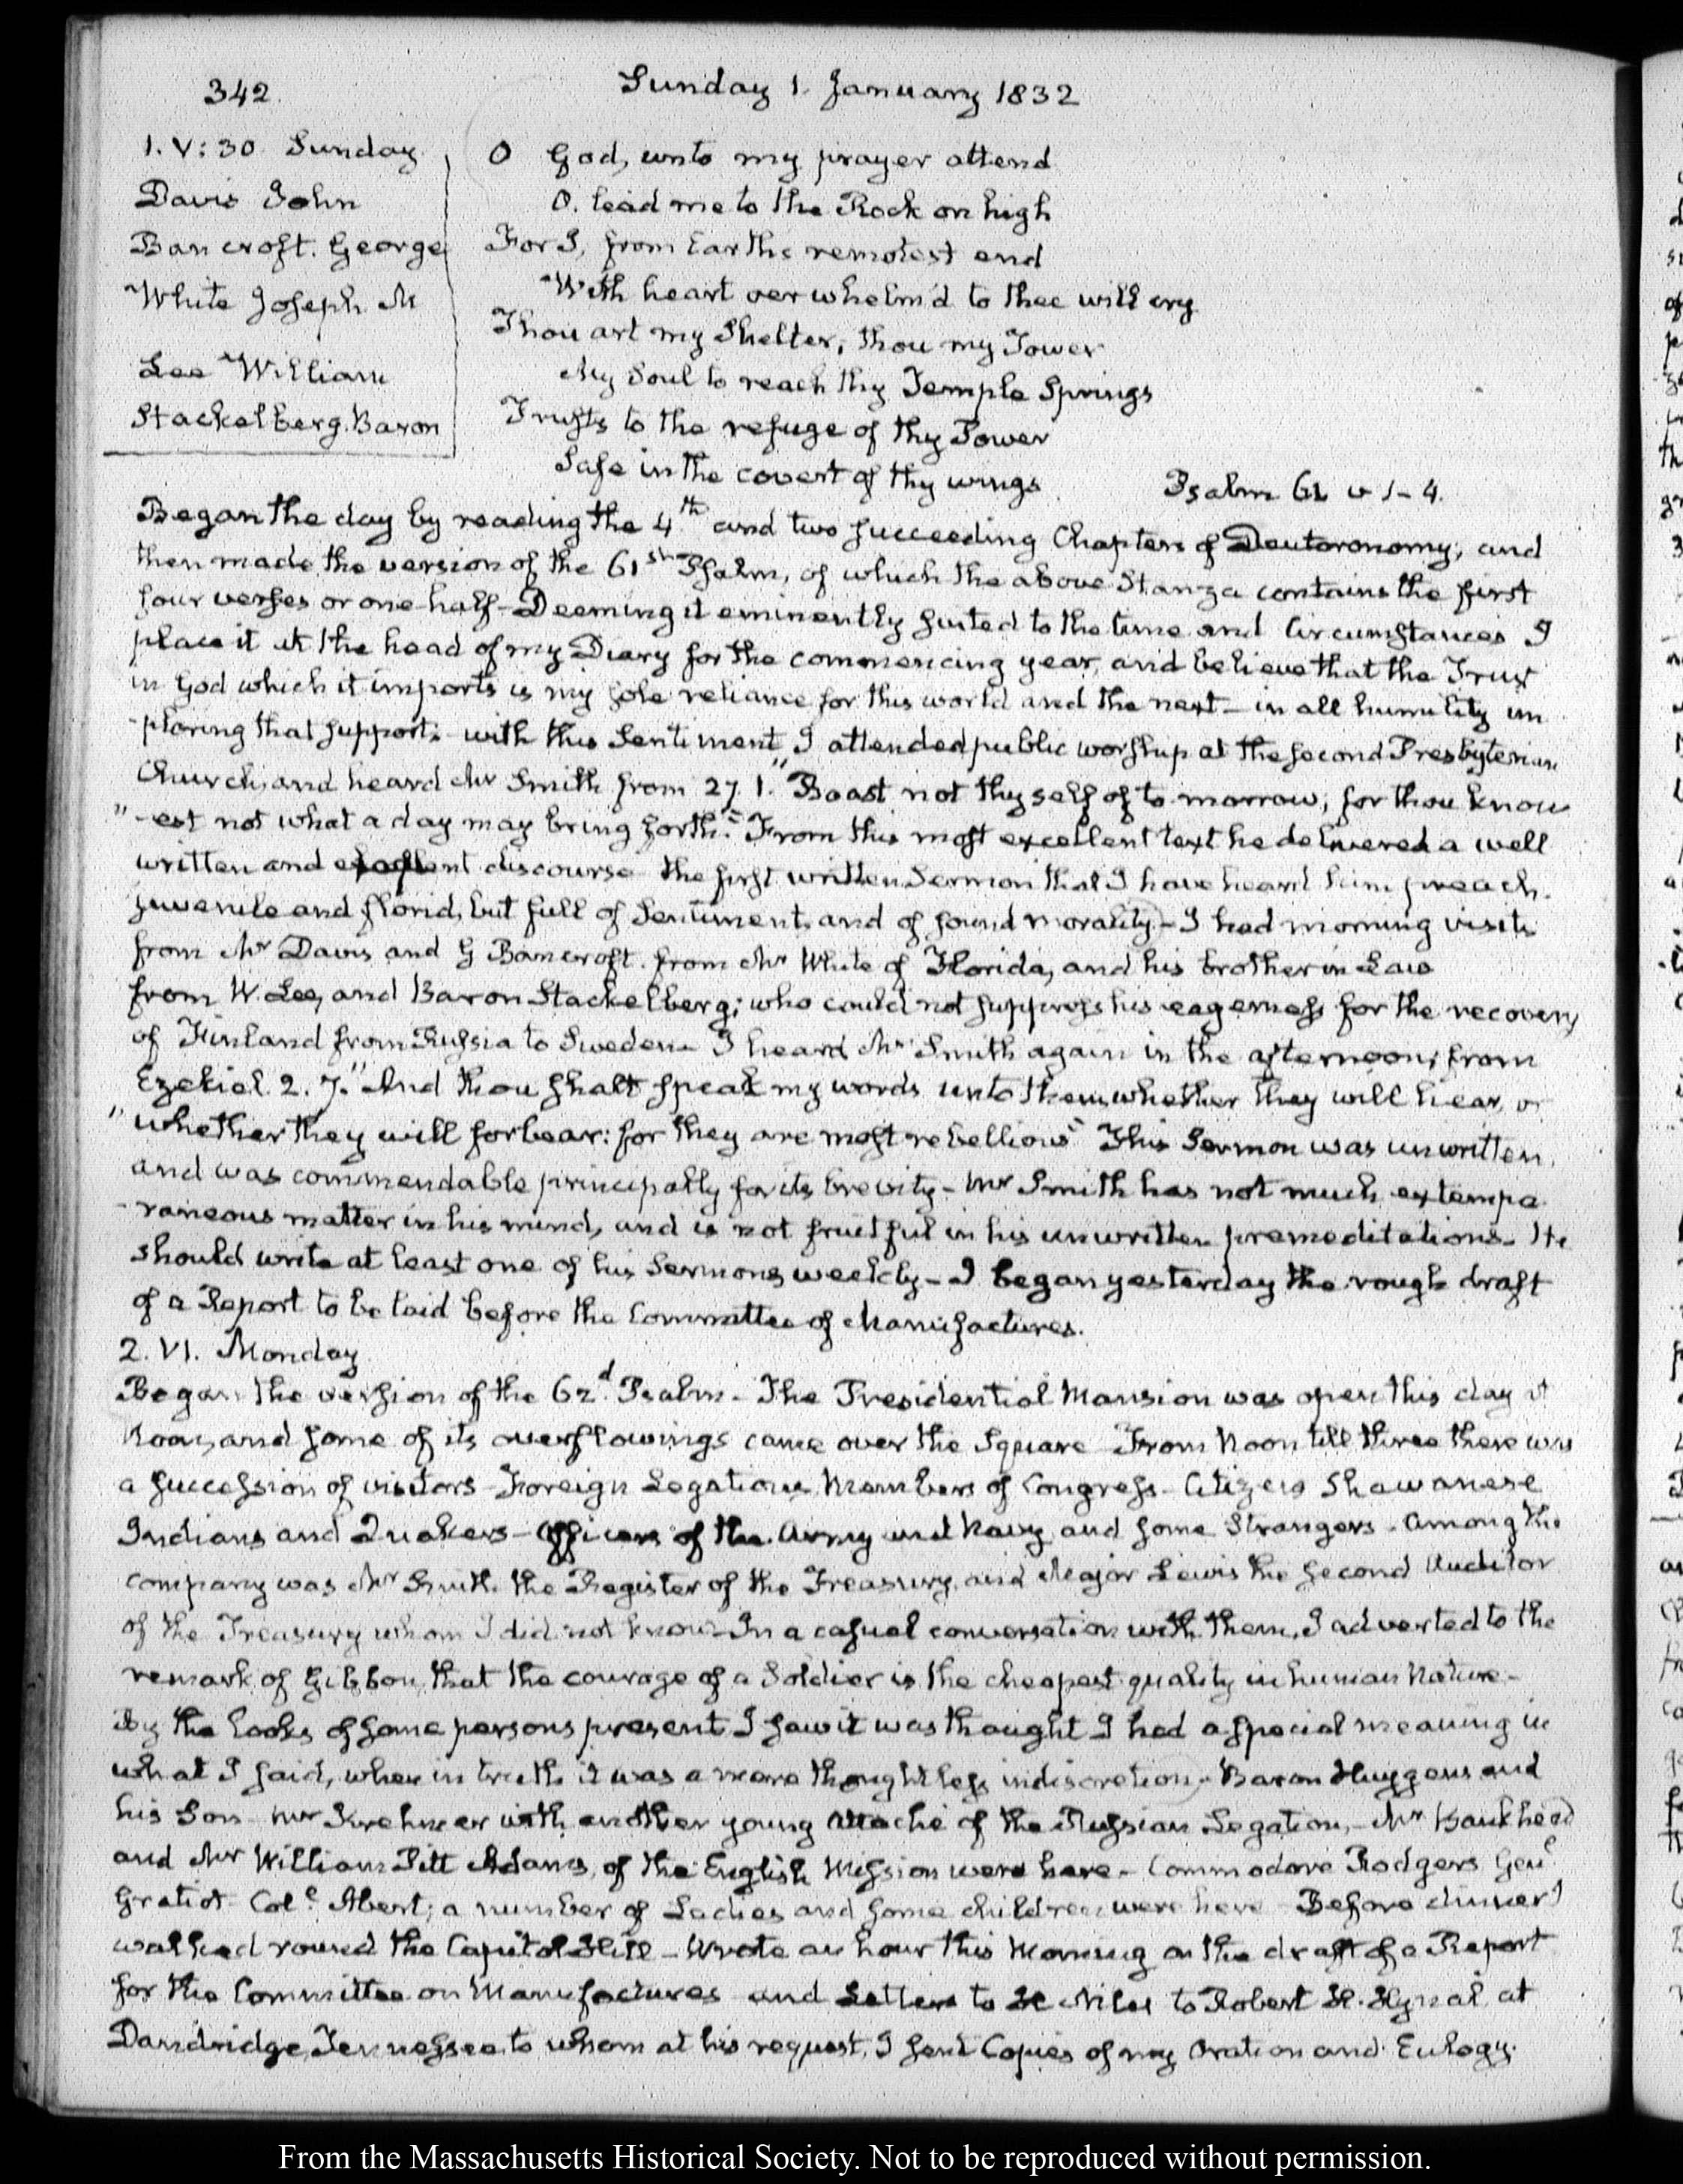 342.
Sunday 1. January 1832
1. V: 30. Sunday
Davis John
Bancroft. George
White Joseph. M
Lee William
Stackelberg. Baron
O God, unto my prayer attend
O. lead me to the Rock on high
For I, from Earths remotest end
With heart overwhelm'd to thee will cry
Thou art my Shelter, thou my Tower
My Soul to reach thy Temple Springs
Trusts to the refuge of thy Power
Safe in the covert of thy wings
Psalm 61 v 1-4.
Began the day by reading the 4th and two succeeding Chapters of Deuteronomy, and
then made the version of the 61st Psalm, of which the above Stanza contains the first
four verses or one half - Deeming it eminently suited to the time and Circumstances I
place it at the head of my Diary for the commencing year, and believe that the Trust
in God which it imports is my sole reliance for this world and the next - in all humility im
-ploring that support. with this Sentiment I attended public worship at the second Presbyterian
Church, and heard Mr Smith from 27. 1. "Boast not thyself of to-morrow; for thou know
"-est not what a day may bring forth." From this most excellent text he delivered a well
written and discourse the first written Sermon that I have heard him preach.
juvenile and florid, but full of Sentiment, and of sound morality - I had morning visits
from Mr Davis and G Bancroft. from Mr White of Florida, and his brother in Law
from W. Lee, and Baron Stackelberg; who could not suppress his eagerness for the recovery
of Finland from Russia to Sweden - I heard Mr Smith again in the afternoon; from
Ezekiel. 2. 7. "And thou shalt speak my words unto them, whether they will hear, or
"whether they will forbear: for they are most rebellious" This Sermon was unwritten,
and was commendable principally for its brevity - Mr Smith has not much extempo
-raneous matter in his mind, and is not fruitful in his unwritten premeditations - He
should write at least one of his Sermons weekly - I began yesterday the rough draft
of a Report to be laid before the Committee of Manufactures.
2. VI. Monday
Began the version of the 62d Psalm - The Presidential Mansion was open this day at
Noon, and some of its overflowings came over the Square From Noon till three there was
a succession of visitors - Foreign Legations, Members of Congress - Citizens Shawanese
Indians and Quakers - Officers of the Army and Navy and some Strangers - Among the
company was Mr Smith the Register of the Treasury, and Major Lewis the Second Auditor
of the Treasury whom I did not know - In a casual conversation with them, I adverted to the
remark of Gibbon, that the courage of a Soldier is the cheapest quality in human Nature -
By the looks of some persons present I saw it was thought I had a special meaning in
what I said, when in truth it was a mere thoughtless indiscretion - Baron Huygens and
his Son - Mr Krehmer with another young Attaché of the Russian Legation, - Mr Bankhead
and Mr William Pitt Adams, of the English Mission were here - Commodore Rodgers Genl
Gratiot - Coll Abert; a number of Ladies and some children were here Before dinner I
walked round the Capitol Hill - Wrote an hour this Morning on the draft of a Report
for the Committee on Manufactures and Letters to H Niles to Robert H. Hynds at
Dandridge, Tennessee, to whom at his request, I sent Copies of my Oration and Eulogy.
From the Massachusetts Historical Society. Not to be reproduced without permission.